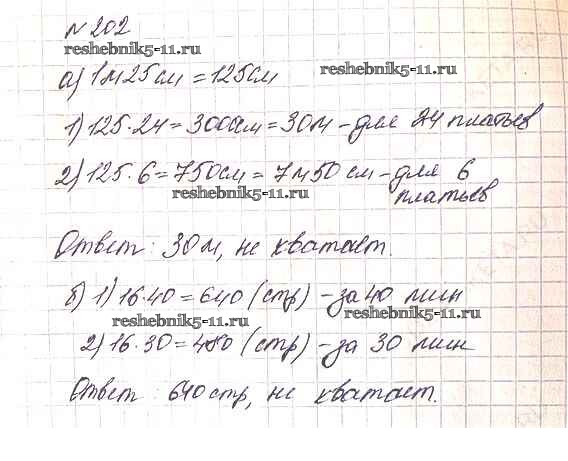 № 202
reshebnik5-11.ru
а) 1м25см = 125см
reshebnik5-11.ru
1) 125·24 = 3000см = 30м - для 24 платьев
2) 125·6 = 750см = 7м50см - для 6
reshebnik5-11.ru
платьев
Ответ: 30м, не хватает.
б) 1) 16·40 = 640 (стр) - за 40 мин
reshebnik5-11.ru
reshebnik5-11.ru
2) 16·30 = 480 (стр) - за 30 мин
Ответ: 640 стр, не хватает.